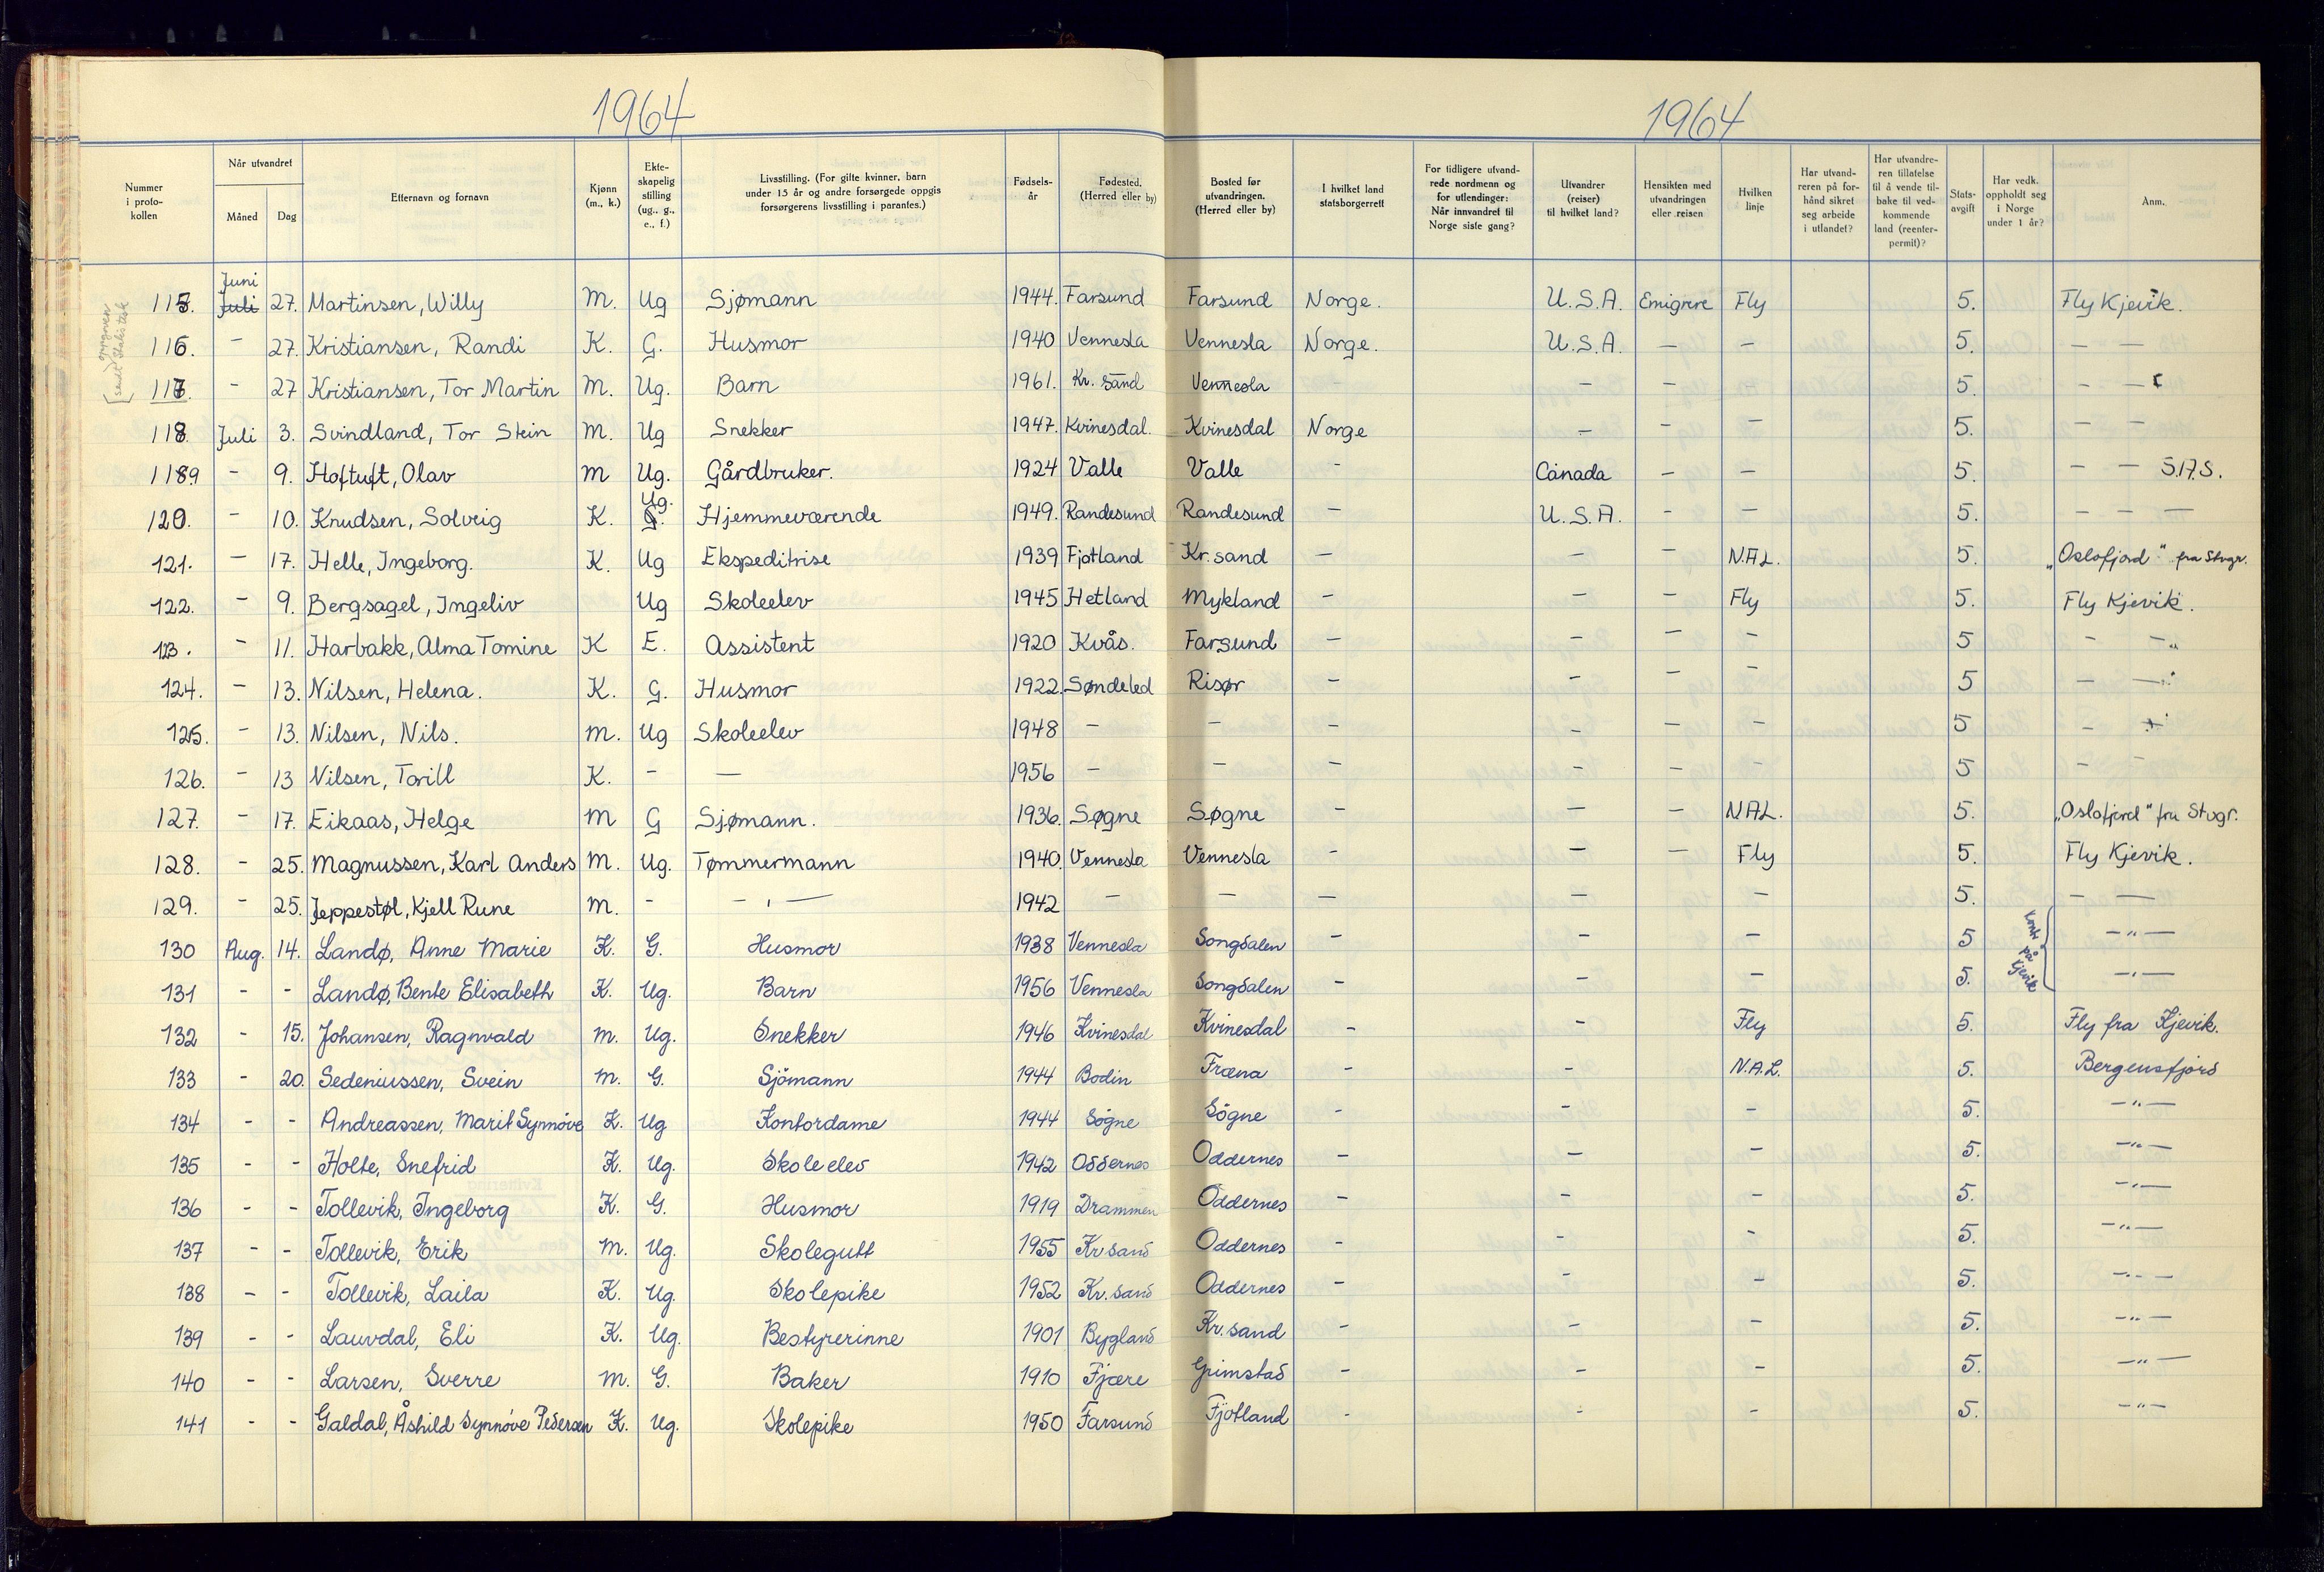 1964
1964
Nummer i proto-kollen | Når utvandret Måned Dag | Etternavn og fornavn | Kjønn (m., k.) | Ekte-skapelig stilling (ug., g., e., f.) | Livsstilling. (For gifte kvinner, barn under 15 år og andre forsørgede oppgis forsørgerens livsstilling i parantes.) | Fødsels-år | Fødested. (Herred eller by) | Bosted før utvandringen. (Herred eller by) | I hvilket land statsborgerrett | For tidligere utvand-rede nordmenn og for utlendinger: Når innvandret til Norge siste gang? | Utvandrer (reiser) til hvilket land? | Hensikten med utvandringen eller reisen | Hvilken linje | Har utvand-reren på for-hånd sikret seg arbeide i utlandet? | Har utvandre-ren tillatelse til å vende til-bake til ved-kommende land (reenter-permit)? | Stats-avgift | Har vedk. oppholdt seg i Norge under 1 år? | Anm.
115. Juni Juli 27. Martinsen, Willy M. Ug Sjømann 1944. Farsund Farsund Norge. U.S.A. Emigrere Fly 5. Fly Kjevik.
116. - 27. Kristiansen, Randi K. G. Husmor 1940 Vennesla Vennesla Norge. U.S.A. - - 5. - -
117. - 27 Kristiansen, Tor Martin M. Ug. Barn 1961. Kr. sand Vennesla - - - - 5. - -
118. Juli 3. Svindland, Tor Stein M. Ug Snekker 1947. Kvinesdal. Kvinesdal Norge - - - 5. - -
119 - 9. Hoftuft, Olav M Ug. Gårdbruker. 1924 Valle Valle - Canada - - 5. - - S.A.S.
120. - 10. Knudsen, Solveig K. Ug. Hjemmeværende 1949. Randesund Randesund - U.S.A. - - 5. - - -
121. - 17. Helle, Ingeborg. K. Ug Ekspeditrise 1939 Fjotland Kr. sand - - - N.A.L. 5. „Oslofjord" fra Stvgr.
122. - 9. Bergsagel, Ingeliv Ug Skoleelev 1945 Hetland Mykland - - - Fly 5. Fly Kjevik.
123. - 11. Harbakk, Alma Tomine K E. Assistent 1920 Kvås. Farsund - - - - 5 - -"
124. - 13. Nilsen, Helena. K. G. Husmor 1922. Søndeled Risør - - - - 5 - -
125. - 13. Nilsen, Nils. M. Ug Skoleelev 1948 - - - - - - 5 - -
126. - 13 Nilsen, Torill K. - - 1956 - - - - - - 5 - -
127. - 17. Eikaas, Helge M G Sjømann. 1936. Søgne Søgne - - - N.A.L. 5. „Oslofjord" fra Stvgr.
128. - 25. Magnussen, Karl Anders M. Ug. Tømmermann 1940. Vennesla Vennesla - - - Fly 5. Fly Kjevik.
129. - 25. Jeppestøl, Kjell Rune M. - - " - 1942 - - - - - 5. - -
130 Aug. 14. Landø, Anne Marie K. G. Husmor 1938 Vennesla Songdalen - - - 5 - " -
131 - - Landø, Bente Elisabeth K. Ug. Barn 1956 Vennesla Songdalen - - - 5. - " -
på Kjevik
132 - 15. Johansen, Ragnvald M. Ug. Snekker 1946 Kvinesdal Kvinesdal - - Fly 5. Fly fra Kjevik.
133 - 20. Sedeniussen, Svein M. G. Sjömann 1944 Bodin Fræna - - N.A.L. 5. Bergensfjord
134 - - Andreassen, Marit Synnöve K. Ug Kontordame 1944 Sögne Sögne - - - 5. - " -
135 - - Holte, Snefrid K. Ug. Skoleelev 1942 Oddernes Oddernes - - - 5. - " -
136 - - Tollevik, Ingeborg K. G. Husmor 1919 Drammen Oddernes - - - 5. - " -
137 - - Tollevik, Erik M. Ug. Skolegutt 1955 Kr sand Oddernes - - - 5. - " -
138 - - Tollevik, Laila K. Ug. Skolepike 1952 Kr. sand Oddernes - - - 5. - " -
139 - - Lauvdal, Eli K. Ug. Bestyrerinne 1901 Bygland Kr. sand - - - 5. - " -
140 - - Larsen, Sverre M. G. Baker 1910 Fjære Grimstad - - - 5. - " -
141 - - Galdal, Åshild Synnöve Pedersen K. Ug. Skolepike 1950 Farsund Fjotland - - - 5. - " -